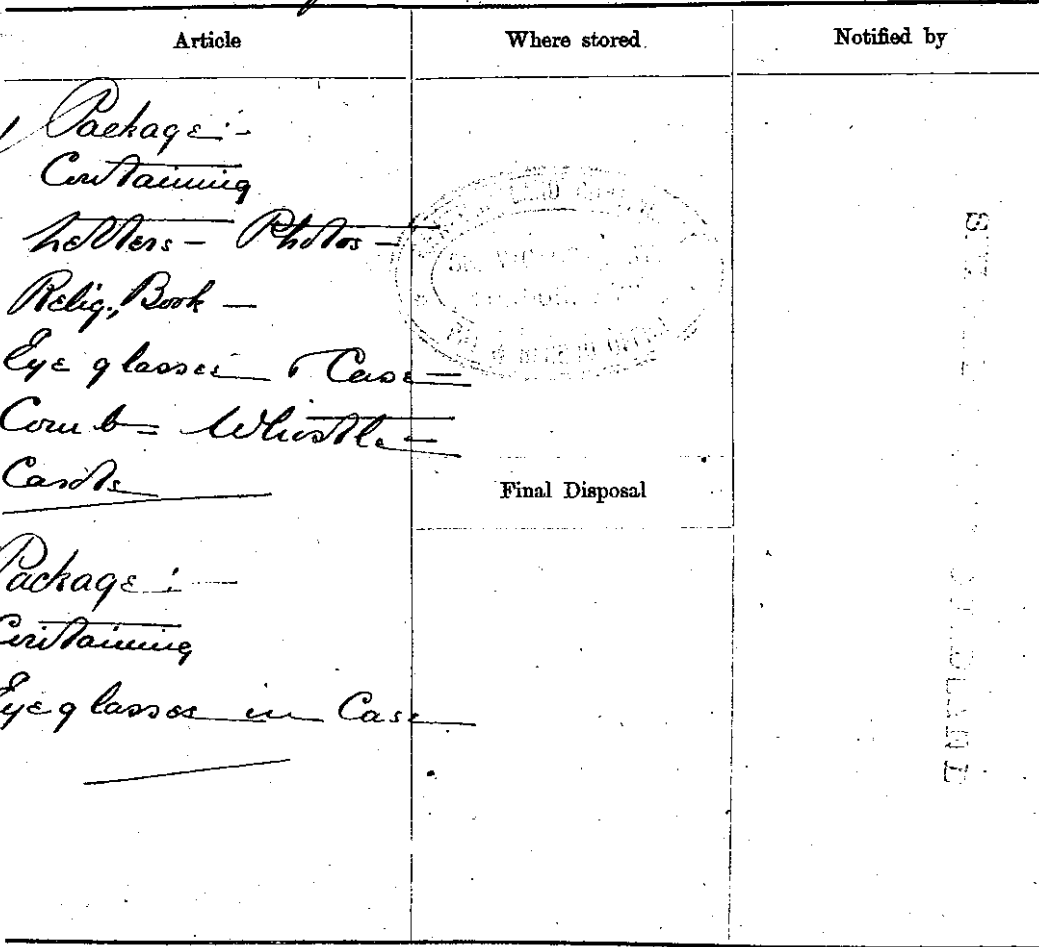 Article
Where stored.
Notified by
1 Package :-
Containing
Letters - Photos -
Relig., Book -
Eye glasses & Case -
Comb - Whistle -
Cards
Final Disposal
Package : -
Containing
Eyeglasses in Case